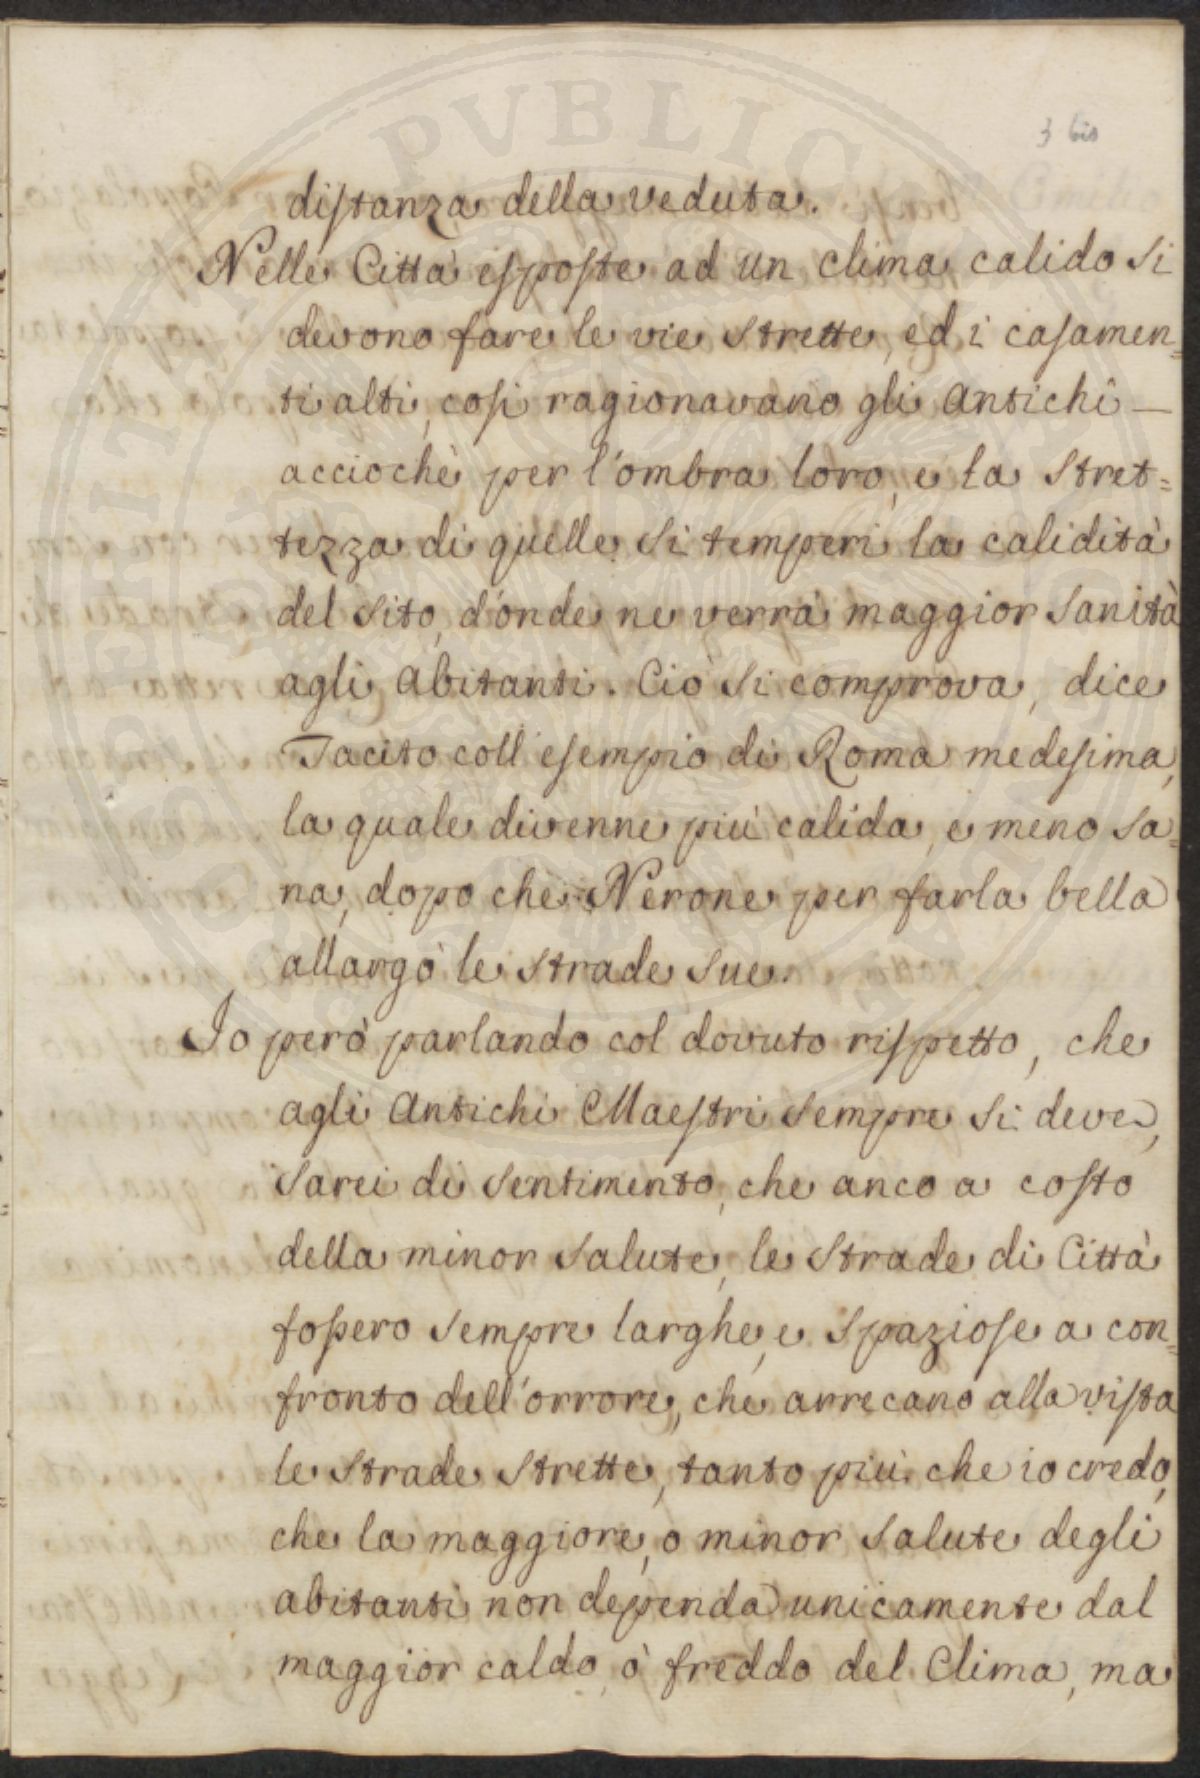 3 bis
distanza della veduta.
Nelle Città esposte ad un clima calido si
devono fare le vie strette, ed i casamen=
ti alti, cosi ragionavano gli Antichi —
acciochè per l'ombra loro, e la stret=
tezza di quelle si temperi la calidità
del sito, d'onde ne verrà maggior sanità
agli Abitanti. Ciò si comprova, dice
Tacito coll'esempio di Roma medesima,
la quale divenne più calida, e meno sa=
na, dopo che Nerone per farla bella
allargò le strade sue.
Io però parlando col dovuto rispetto, che
agli Antichi Maestri sempre si deve,
sarei di sentimento, che anco a costo
della minor salute, le strade di Città
fossero sempre larghe, e spaziose a con=
fronto dell'orrore, che arrecano alla vista
le strade strette, tanto più che io credo,
che la maggiore, o minor salute degli
abitanti non dependa unicamente dal
maggior caldo, ò freddo del Clima, ma